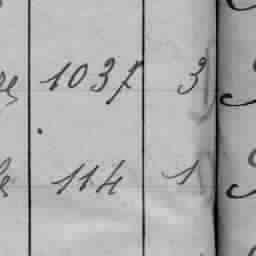 1037 3
114 1